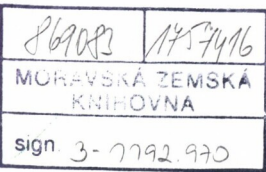 869083 1757416
MORAVSKÁ ZEMSKÁ
KNIHOVNA
sign. 3-1192.970